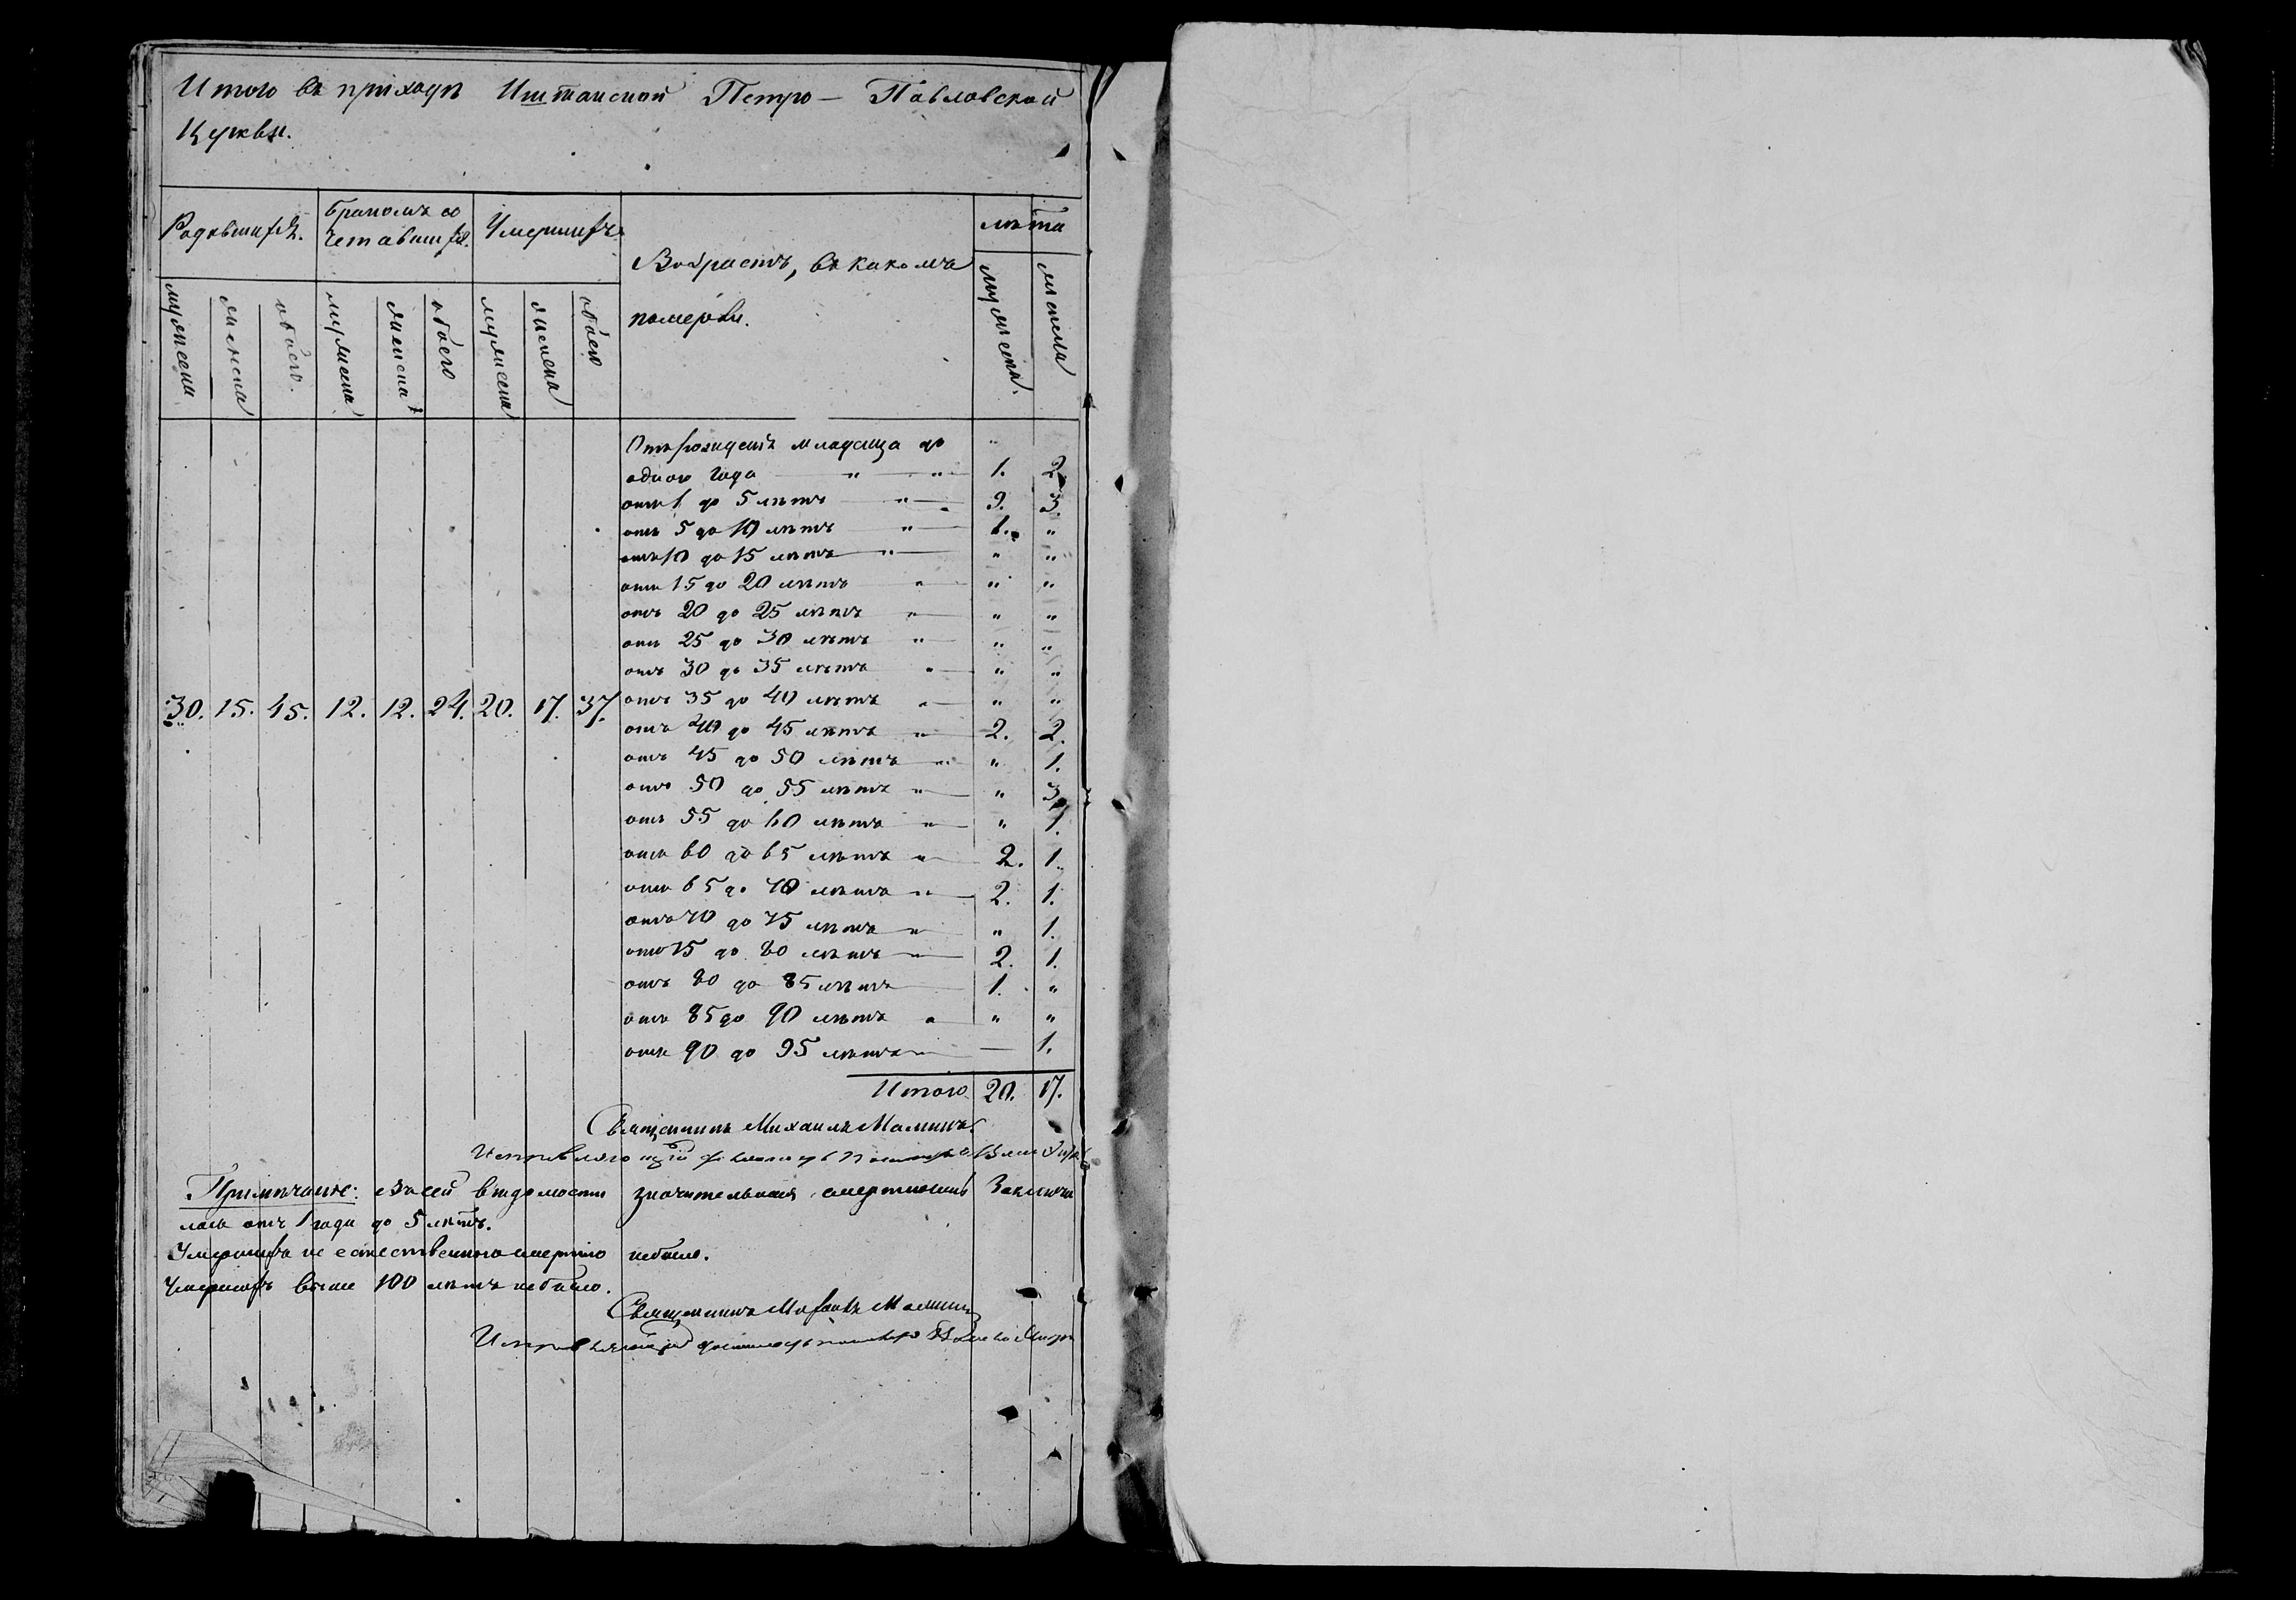 Итого въ приходѣ Иштанской Петро-Павловской
Церкви.
Родившихся.
Бракомъ со
четавшихся.
Умершихъ
Возрастъ, въ какомъ
померли.
лѣта
мужеска
женска
обоего.
мужеска
женска
обоего
мужеска
женска
обоего
мужеска
женска
Отъ рожденія младенца до "
одного года " " 1. 2.
отъ 1 до 5 лѣтъ " 9. 3.
отъ 5 до 10 лѣтъ " 1. "
отъ 10 до 15 лѣтъ " " "
отъ 15 до 20 лѣтъ " " "
отъ 20 до 25 лѣтъ " " "
отъ 25 до 30 лѣтъ " " "
отъ 30 до 35 лѣтъ " " "
30. 15. 45. 12. 12. 24. 20. 17. 37. отъ 35 до 40 лѣтъ " " "
отъ 40 до 45 лѣтъ " 2. 2.
отъ 45 до 50 лѣтъ " " 1.
отъ 50 до 55 лѣтъ " " 3.
отъ 55 до 60 лѣтъ " " 1.
отъ 60 до 65 лѣтъ " 2. 1.
отъ 65 до 70 лѣтъ " 2. 1.
отъ 70 до 75 лѣтъ " " 1.
отъ 75 до 80 лѣтъ " 2. 1.
отъ 80 до 85 лѣтъ 1. "
отъ 85 до 90 лѣтъ " " "
отъ 90 до 95 лѣтъ " — 1.
Итого 20. 17.
Священникъ Михаилъ Малинъ.
Исправляющій должность
Примѣчаніе: въ сей вѣдомости значительная смертность заключа
лась отъ 1 года до 5 лѣтъ.
Умершихъ не естественною смертію небыло.
Умершихъ выше 100 лѣтъ небыло.
Священникъ Михаилъ Малинъ
Исправляющій должность